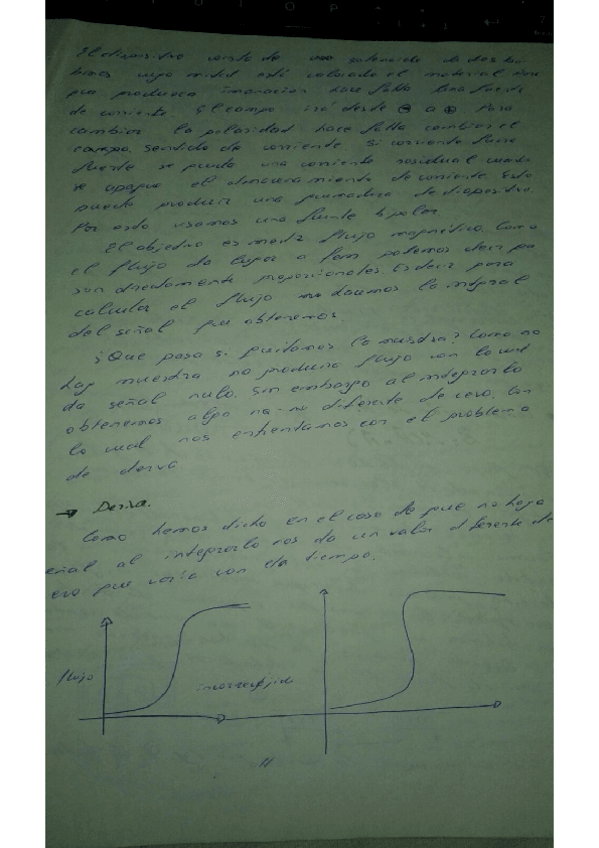 El dispositivo consta de una solenoide de dos bo-
binas cuya mitad está colocado el material. Para
que produzca imanación hace falta una fuente
de corriente. El campo irá desde ⊖ a ⊕. Para
cambiar la polaridad hace falta cambiar el
campo, sentido de corriente. Si corriente fuera
fuerte se puede una corriente residual cuando
se apague el almacenamiento de corriente. Esto
puede producir una quemadura de dispositivo.
Por esto usamos una fuente bipolar.
El objetivo es medir flujo magnético. Como
el flujo da lugar a fem podemos decir que
son directamente proporcionales. Es decir para
calcular el flujo la integral
del señal que obtenemos.
¿Que pasa si quitamos la muestra? Como no
hay muestra no produce flujo con lo cual
da señal nulo. Sin embargo al integrarlo
obtenemos algo diferente de cero. Con
lo cual nos enfrentamos con el problema
de deriva.
→ Deriva.
Como hemos dicho en el caso de que no haya
eñal al integrarlo nos da un valor diferente de
ero que varía con el tiempo.
flujo
11